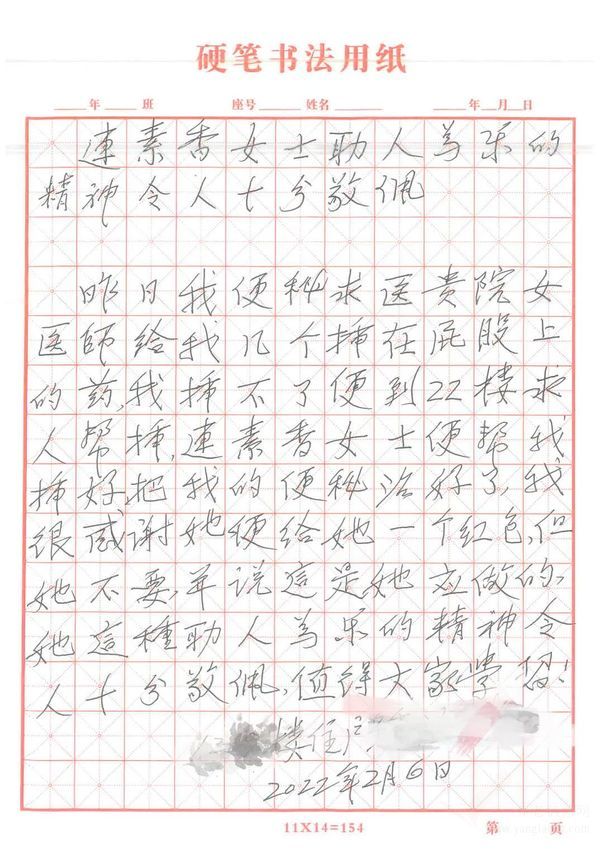 硬笔书法用纸
年 班 座号 姓名 年 月 日
連素香女士助人為乐的
精神令人十分敬佩
昨日我便秘求医貴院女
医師给我几个揷在屁股上
的药,我揷不了便到22楼求
人帮揷,連素香女士便帮我
揷好,把我的便秘治好了,我
很感谢她便给她一个红包,但
她不要,并说這是她应做的,
她這種助人為乐的精神令
人十分敬佩,值得大家学習!
楼住户
2022年2月6日
11X14=154 第 页